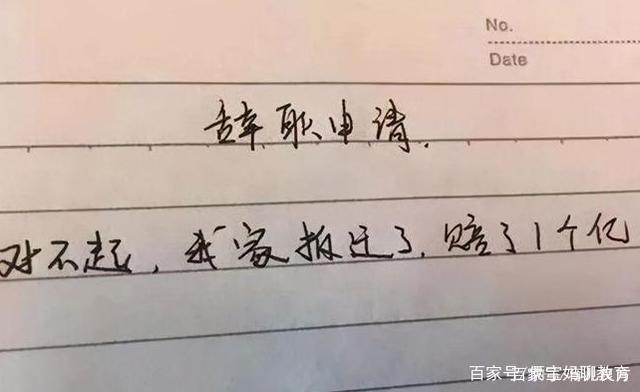 No.
Date
辞职申请.
对不起，我家拆迁了，赔了1个亿
百家号